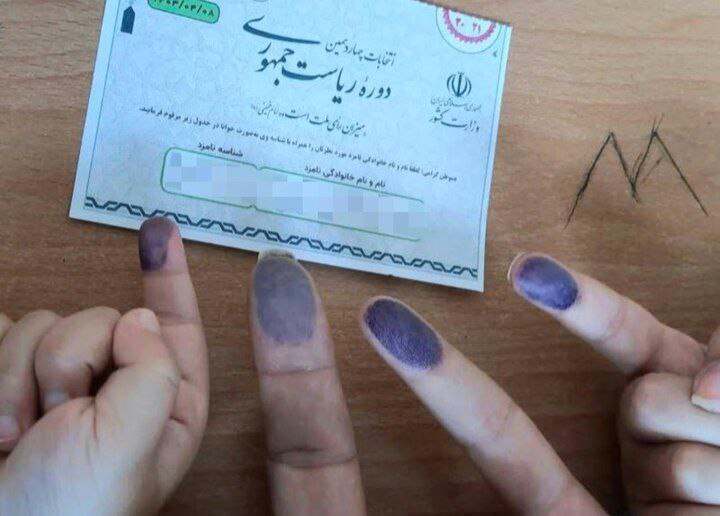 ۱۴۰۳/۰۴/۰۸
انتخابات چهاردهمین
دورهٔ ریاست جمهوری
جمهوری اسلامی ایران
وزارت کشور
میزان رأی ملت است
هموطن گرامی؛ لطفا نام و نام خانوادگی نامزد مورد نظرتان را همراه با شناسه وی به‌صورت خوانا در جدول زیر مرقوم فرمایید.
نام و نام خانوادگی نامزد
شناسه نامزد
M